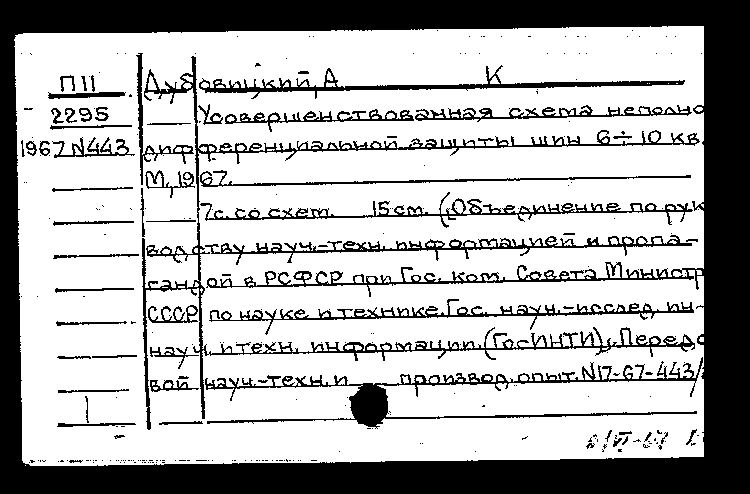 П11 Дубовицкий, А К
2295 Усовершенствованная схема неполно
1967 N443 дифференциальной защиты шин 6÷10 кв.
М, 1967.
7с. со схет. 15 см. (Объединение по рук
водству науч.-техн. информацией и пропа-
гандой в РСФСР при Гос. ком. Совета Министр
СССР по науке и технике. Гос. науч.-исслед. ин-
науч. и техн. информации. (ГосИНТИ). Передо
вой науч.-техн. и производ. опыт. N17-67-443/